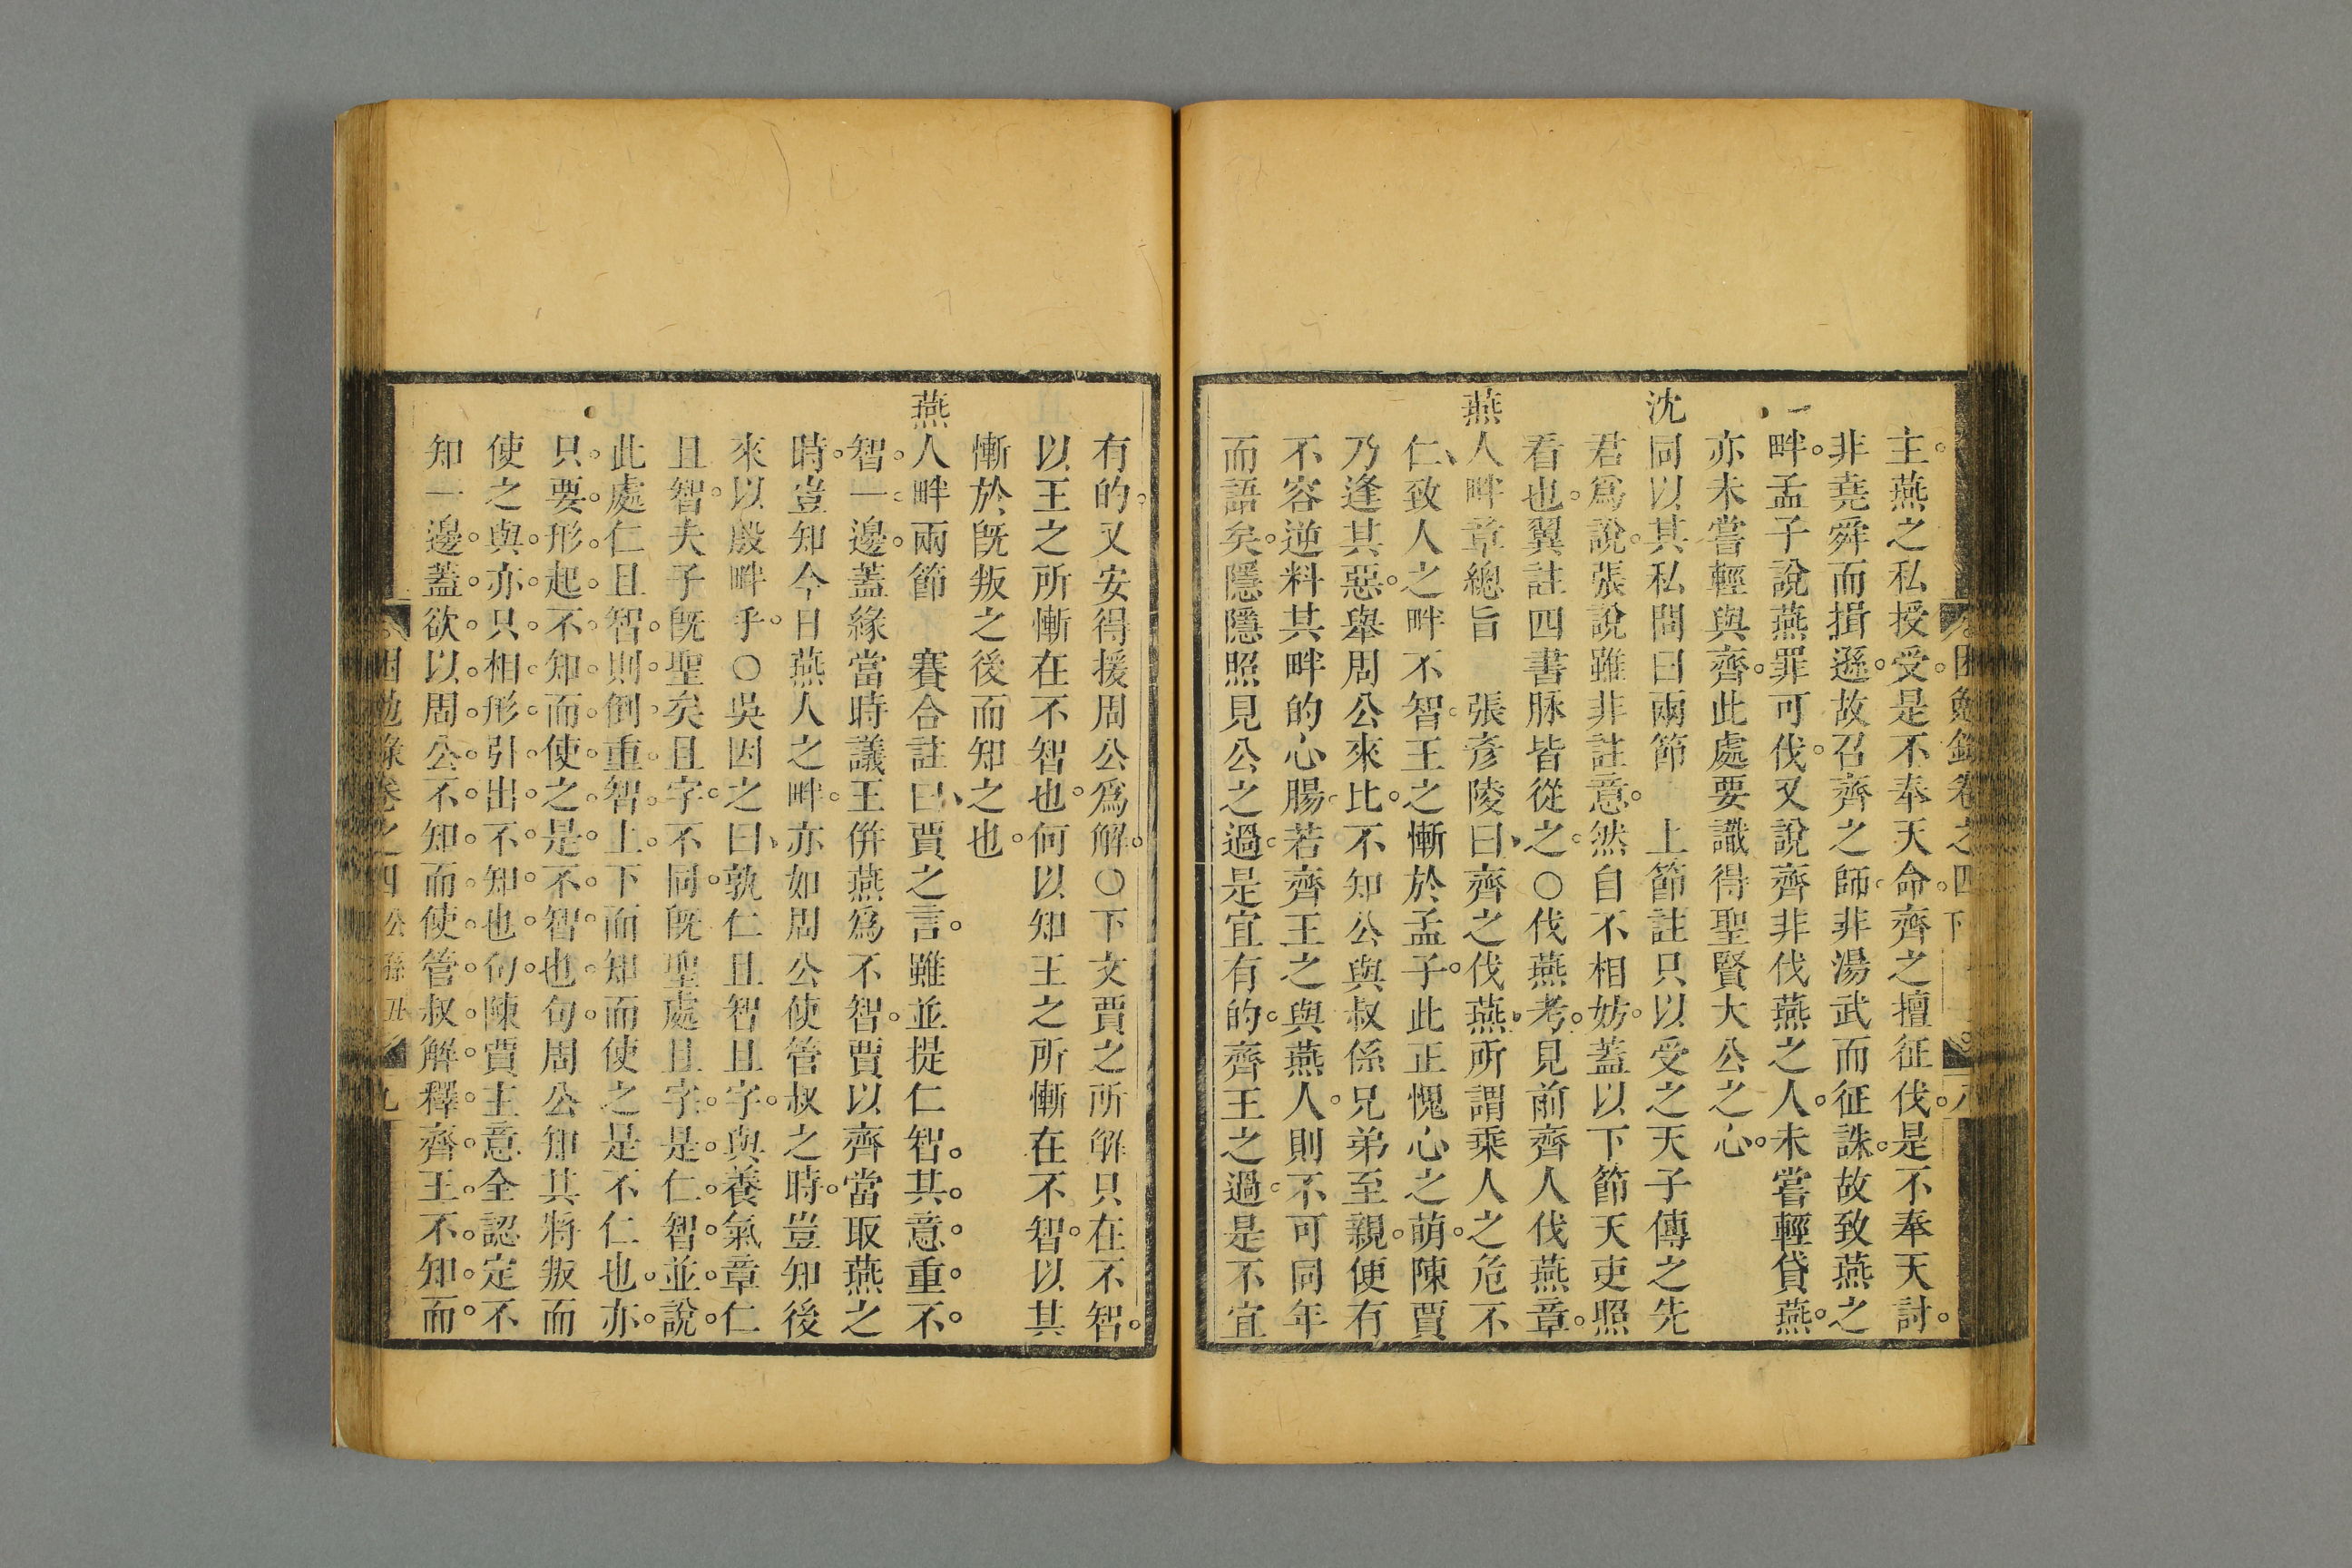 主燕之私授受是不奉天命齊之擅征伐是不奉天討
非堯舜而揖遜故召齊之師非湯武而征誅故致燕之
畔孟子說燕罪可伐又說齊非伐燕之人未嘗輕貸燕
亦未嘗輕與齊此處要識得聖賢大公之心
沈同以其私問曰兩節　上節註只以受之天子傳之先
君爲說張說雖非註意然自不相妨蓋以下節天吏照
看也翼註四書脉皆從之○伐燕考見前齊人伐燕章
燕人畔章總旨　張彥陵曰齊之伐燕所謂乘人之危不
仁致人之畔不智王之慚於孟子此正愧心之萌陳賈
乃逢其惡舉周公來比不知公與叔係兄弟至親便有
不容逆料其畔的心腸若齊王之與燕人則不可同年
而語矣隱隱照見公之過是宜有的齊王之過是不宜
有的又安得援周公爲解○下文賈之所解只在不智
以王之所慚在不智也何以知王之所慚在不智以其
慚於旣叛之後而知之也
燕人畔兩節　賽合註曰賈之言雖並提仁智其意重不
智一邊蓋緣當時議王併燕爲不智賈以齊當取燕之
時豈知今日燕人之畔亦如周公使管叔之時豈知後
來以殷畔乎○吳因之曰孰仁且智且字與養氣章仁
且智夫子旣聖矣且字不同旣聖處且字是仁智並說
此處仁且智則倒重智上下而知而使之是不仁也亦
只要形起不知而使之是不智也句周公知其將叛而
使之與亦只相形引出不知也句陳賈主意全認定不
知一邊蓋欲以周公不知而使管叔解釋齊王不知而
困勉錄卷之四